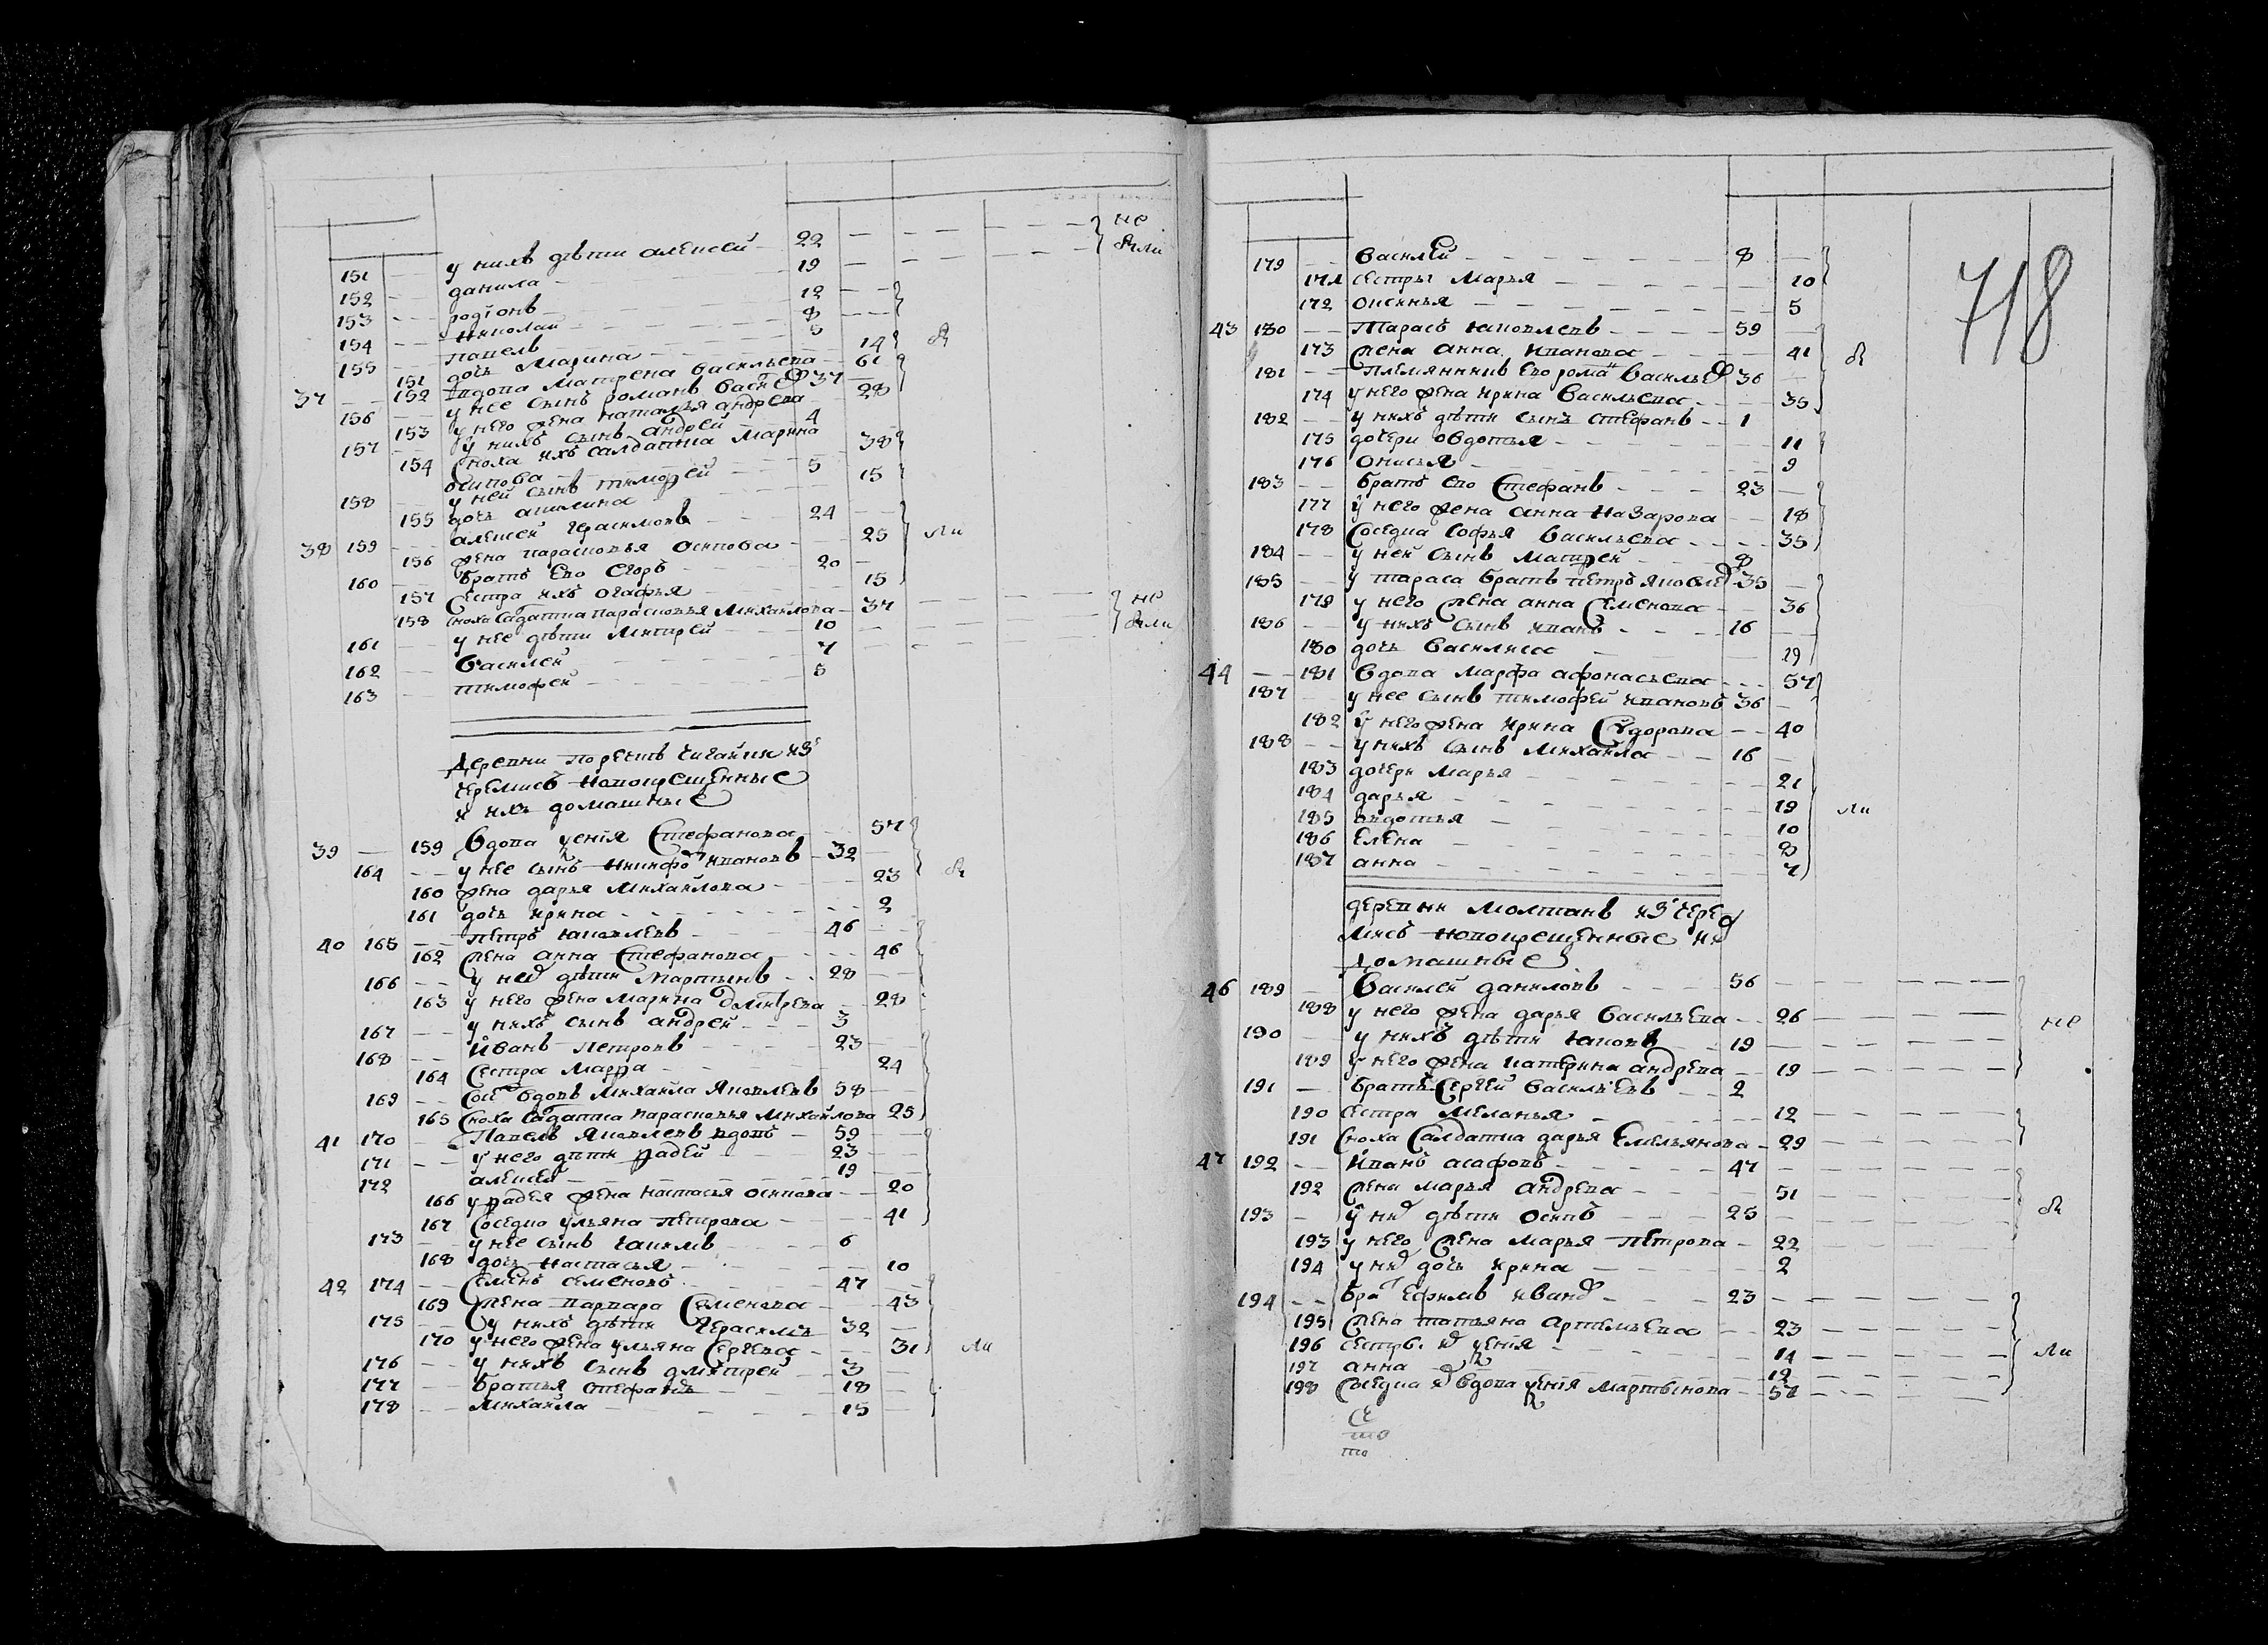 151 у нихъ дѣти алексей 22 не
152 данила 19 были
153 родїонъ 12
154 николай 8
155 павелъ 5
151 дочь Марина 14 бы
37 152 вдова Матрена васильева 61
156 у нее сынъ романъ 37
153 у него жена наталья андрева 28
157 у нихъ сынъ андрей 4
154 Сноха ихъ салдатка Марина
осипова 38
158 у ней сынъ тимофей 5
155 дочь акилина 15
38 159 алексей герасимовъ 24
156 жена парасковья осипова 25 ли
160 братъ Ево Егоръ 20
157 Сестра ихъ огафья 15
158 сноха Садатка парасковья Михаилова 37 не
161 у нее дѣти Митрей 10 были
162 Василей 7
163 тимофей 5
деревни
Черемисъ новокрещенные
и ихъ домашные
39 159 Вдова Стефанова 57
164 у нее сынъ Никифо ивановъ 32 бы
160 жена дарья Михайлова 23
161 дочь ирина 2
40 165 петръ яковлевъ 46
162 жена анна Стефанова 46
166 у них дѣти Мартынъ 28
163 у него жена Марина дмитрева 28
167 у нихъ сынъ андрей 3
168 Иванъ петровъ 23
164 Сестра Марфа 24
169 вдовъ Михайла Яковлевъ 58
165 Сноха Садатка парасковья Михайлова 25
41 170 Павелъ Яковлевъ вдовъ 59
171 у него дѣти фадей 23
172 алексей 19
166 у фадея жена настасья осипова 20
167 Соседка ульяна петрова 41
173 у нее сынъ 6
168 дочь настасья 10
42 174 Семенъ семеновъ 47
169 жена варвара Семенова 43
175 у нихъ дѣти герасимъ 32
170 у него жена ульяна Сергева 31 ли
176 у нихъ сынъ дмитрей 3
177 братья стефанъ 18
178 Михайла 15
718
179 Василей 8
171 сестры Марья 10
172 оксинья 5
43 180 Тарасъ яковлевъ 59
173 жена анна иванова 41 бы
181 племянникъ Ево рома Василье 36
174 у него жена ирина Васильева 35
182 у нихъ дѣти сынъ стефанъ 1
175 дочери овдотья 11
176 онисья 9
183 братъ ево Стефанъ 23
177 у него жена анна назарова 18
178 Соседка Софья Васильева 35
184 у ней сынъ Матфей 8
185 у тараса братъ петръ яковле 35
179 у него жена анна Семенова 36
186 у нихъ сынъ иванъ 16
180 дочь Василиса 19
44 181 Вдова марфа афонасьева 57
187 у нее сынъ тимофей ивановъ 36
182 у него жена ирина Сидорова 40
188 у нихъ сынъ Михайла 16
183 дочери Марья 21
184 дарья 19 ли
185 авдотья 10
186 Елена 8
187 анна 7
деревни Молтанъ из чере
мисъ новокрещенные их
домашные
46 189 Василей даниловъ 56
188 у него жена дарья Васильева 26 не
190 у нихъ дѣти яковъ 19
189 у него жена катерина андрева 19
191 братъ Сергей васильевъ 2
190 сестра меланья 12
191 Сноха Салдатка дарья Емельянова 29
47 192 иванъ асафовъ 47
192 жена марья андрева 51
193 у них дѣти осипъ 25 бы
193 у него жена марья петрова 22
194 у них дочь ирина 2
194 бра Ефимъ ивано 23
195 жена татьяна артемьева 23
196 сестр. 14 ли
197 анна 12
198 Соседка вдова Мартынова 57